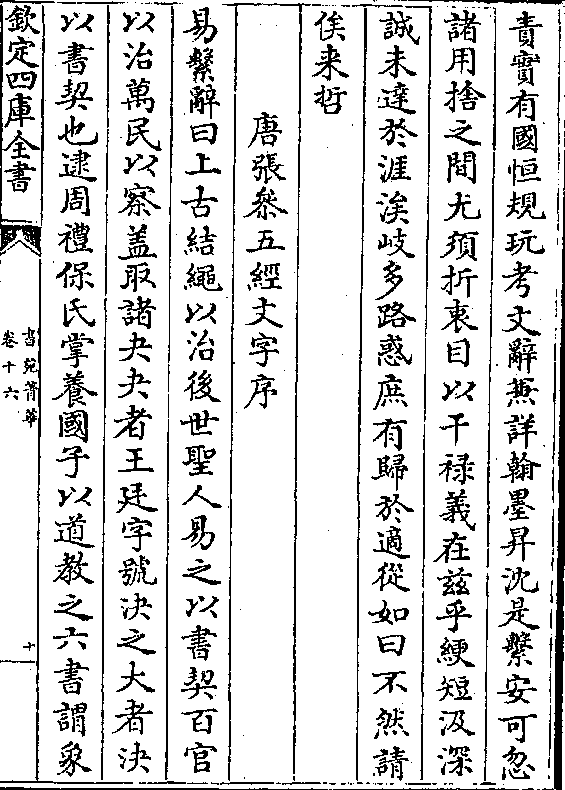 責實有國恒規玩考文辭兼詳翰墨昇沈是繫安可忽
諸用捨之間尤須折衷目以干禄義在兹乎綆短汲深
誠未達於涯涘岐多路惑庶有歸於適從如曰不然請
俟来哲
唐張叅五經文字序
易繫辭曰上古結繩以治後世聖人易之以書契百官
以治萬民以察盖取諸夬夬者王廷字號決之大者決
以書契也逮周禮保氏掌養國子以道教之六書謂象
欽定四庫全書
書苑菁華
卷十六
十